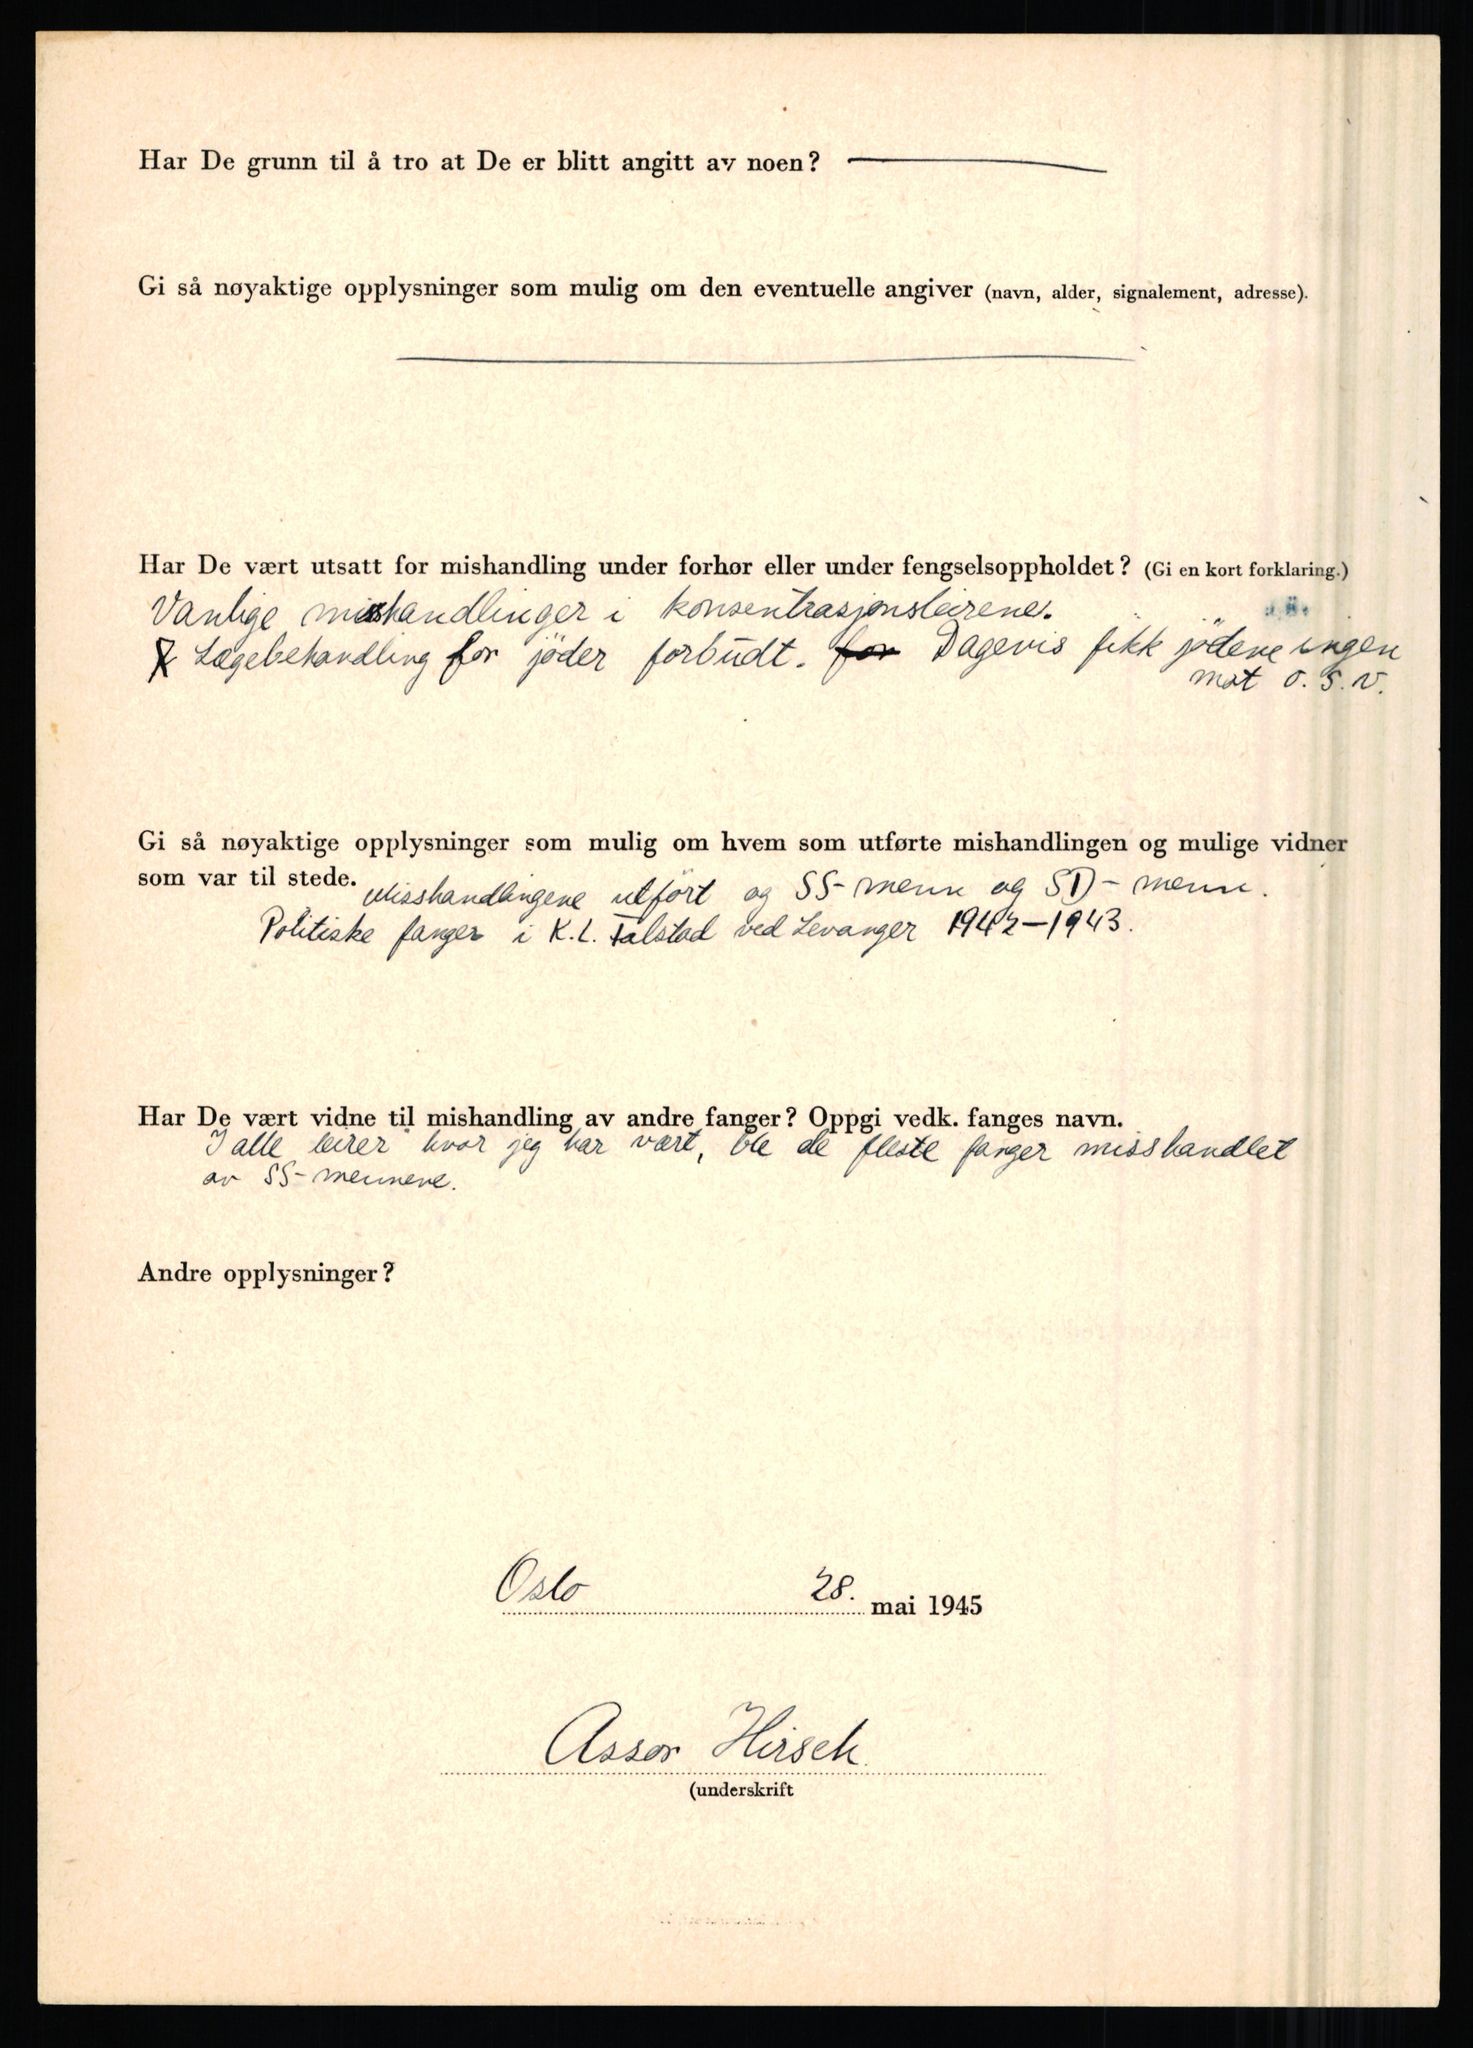 Har De grunn til å tro at De er blitt angitt av noen?
Gi så nøyaktige opplysninger som mulig om den eventuelle angiver (navn, alder, signalement, adresse).
Har De vært utsatt for mishandling under forhør eller under fengselsoppholdet? (Gi en kort forklaring.)
Vanlige misshandlinger i konsentrasjonsleirene.
Lægebehandling for jøder forbudt. for Dagevis fikk jödene ingen
mat o.s.v.
Gi så nøyaktige opplysninger som mulig om hvem som utførte mishandlingen og mulige vidner
som var til stede. Misshandlingene utført og SS-menn og SD-menn.
Politiske fanger i K.L. Falstad ved Levanger 1942-1943.
Har De vært vidne til mishandling av andre fanger? Oppgi vedk. fanges navn.
I alle leirer hvor jeg har vært, ble de fleste fanger misshandlet
av SS-mennene.
Andre opplysninger?
Oslo 28. mai 1945
Assor Hirsch.
(underskrift